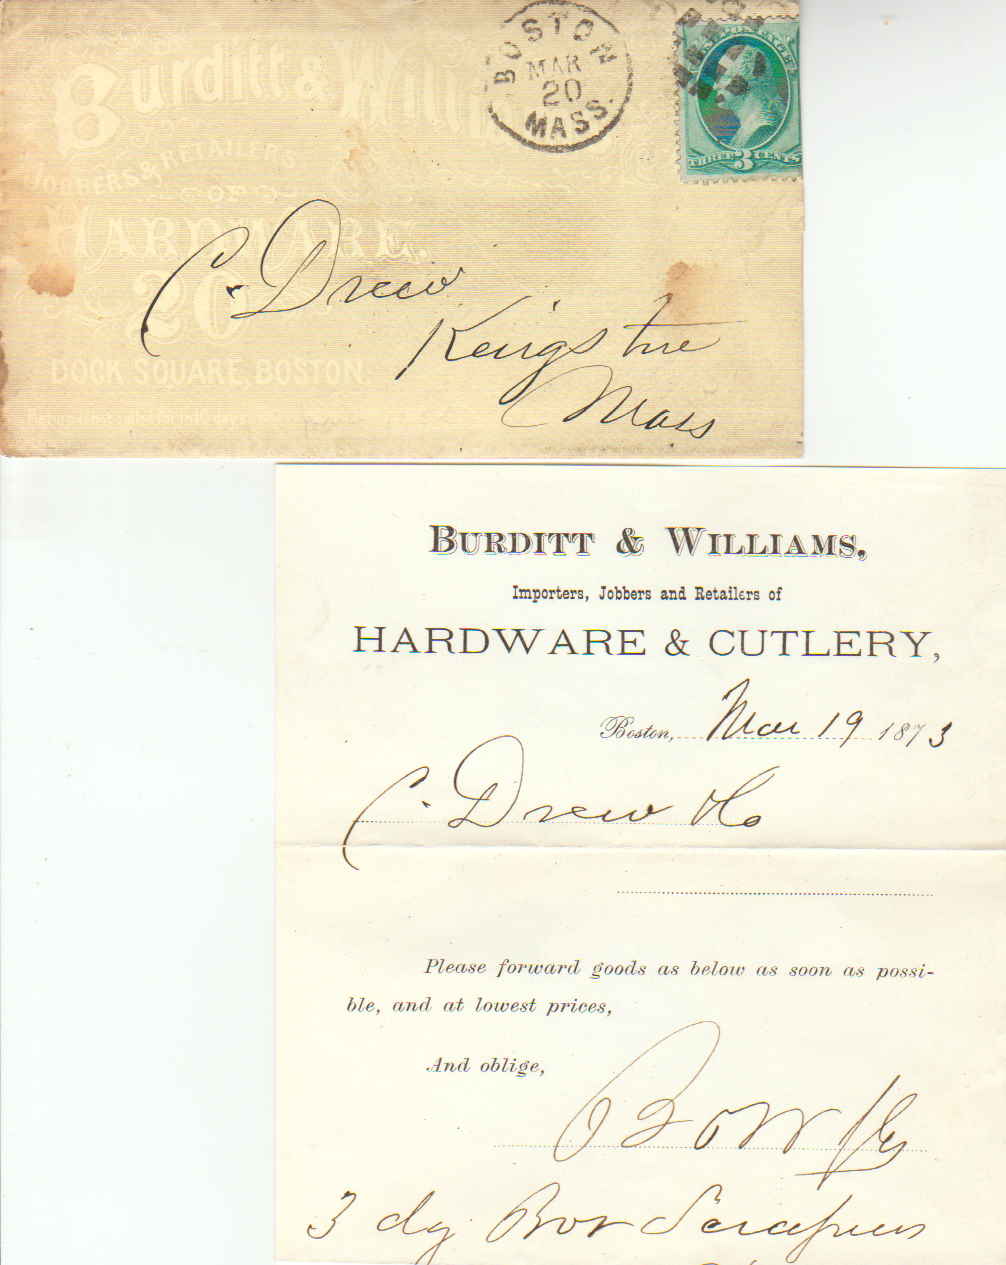 Burditt & Willi
JOBBERS & RETAILERS
OF
HARDWARE.
20
DOCK SQUARE, BOSTON.
BOSTON
MAR
20
MASS.
U.S. POSTAGE
THREE 3 CENTS
C. Drew
Kingston
Mass
BURDITT & WILLIAMS,
Importers, Jobbers and Retailers of
HARDWARE & CUTLERY,
Boston, Mar 19 1873
C. Drew & Co
Please forward goods as below as soon as possi-
ble, and at lowest prices,
And oblige,
B & W
3 dz Box Scrapers